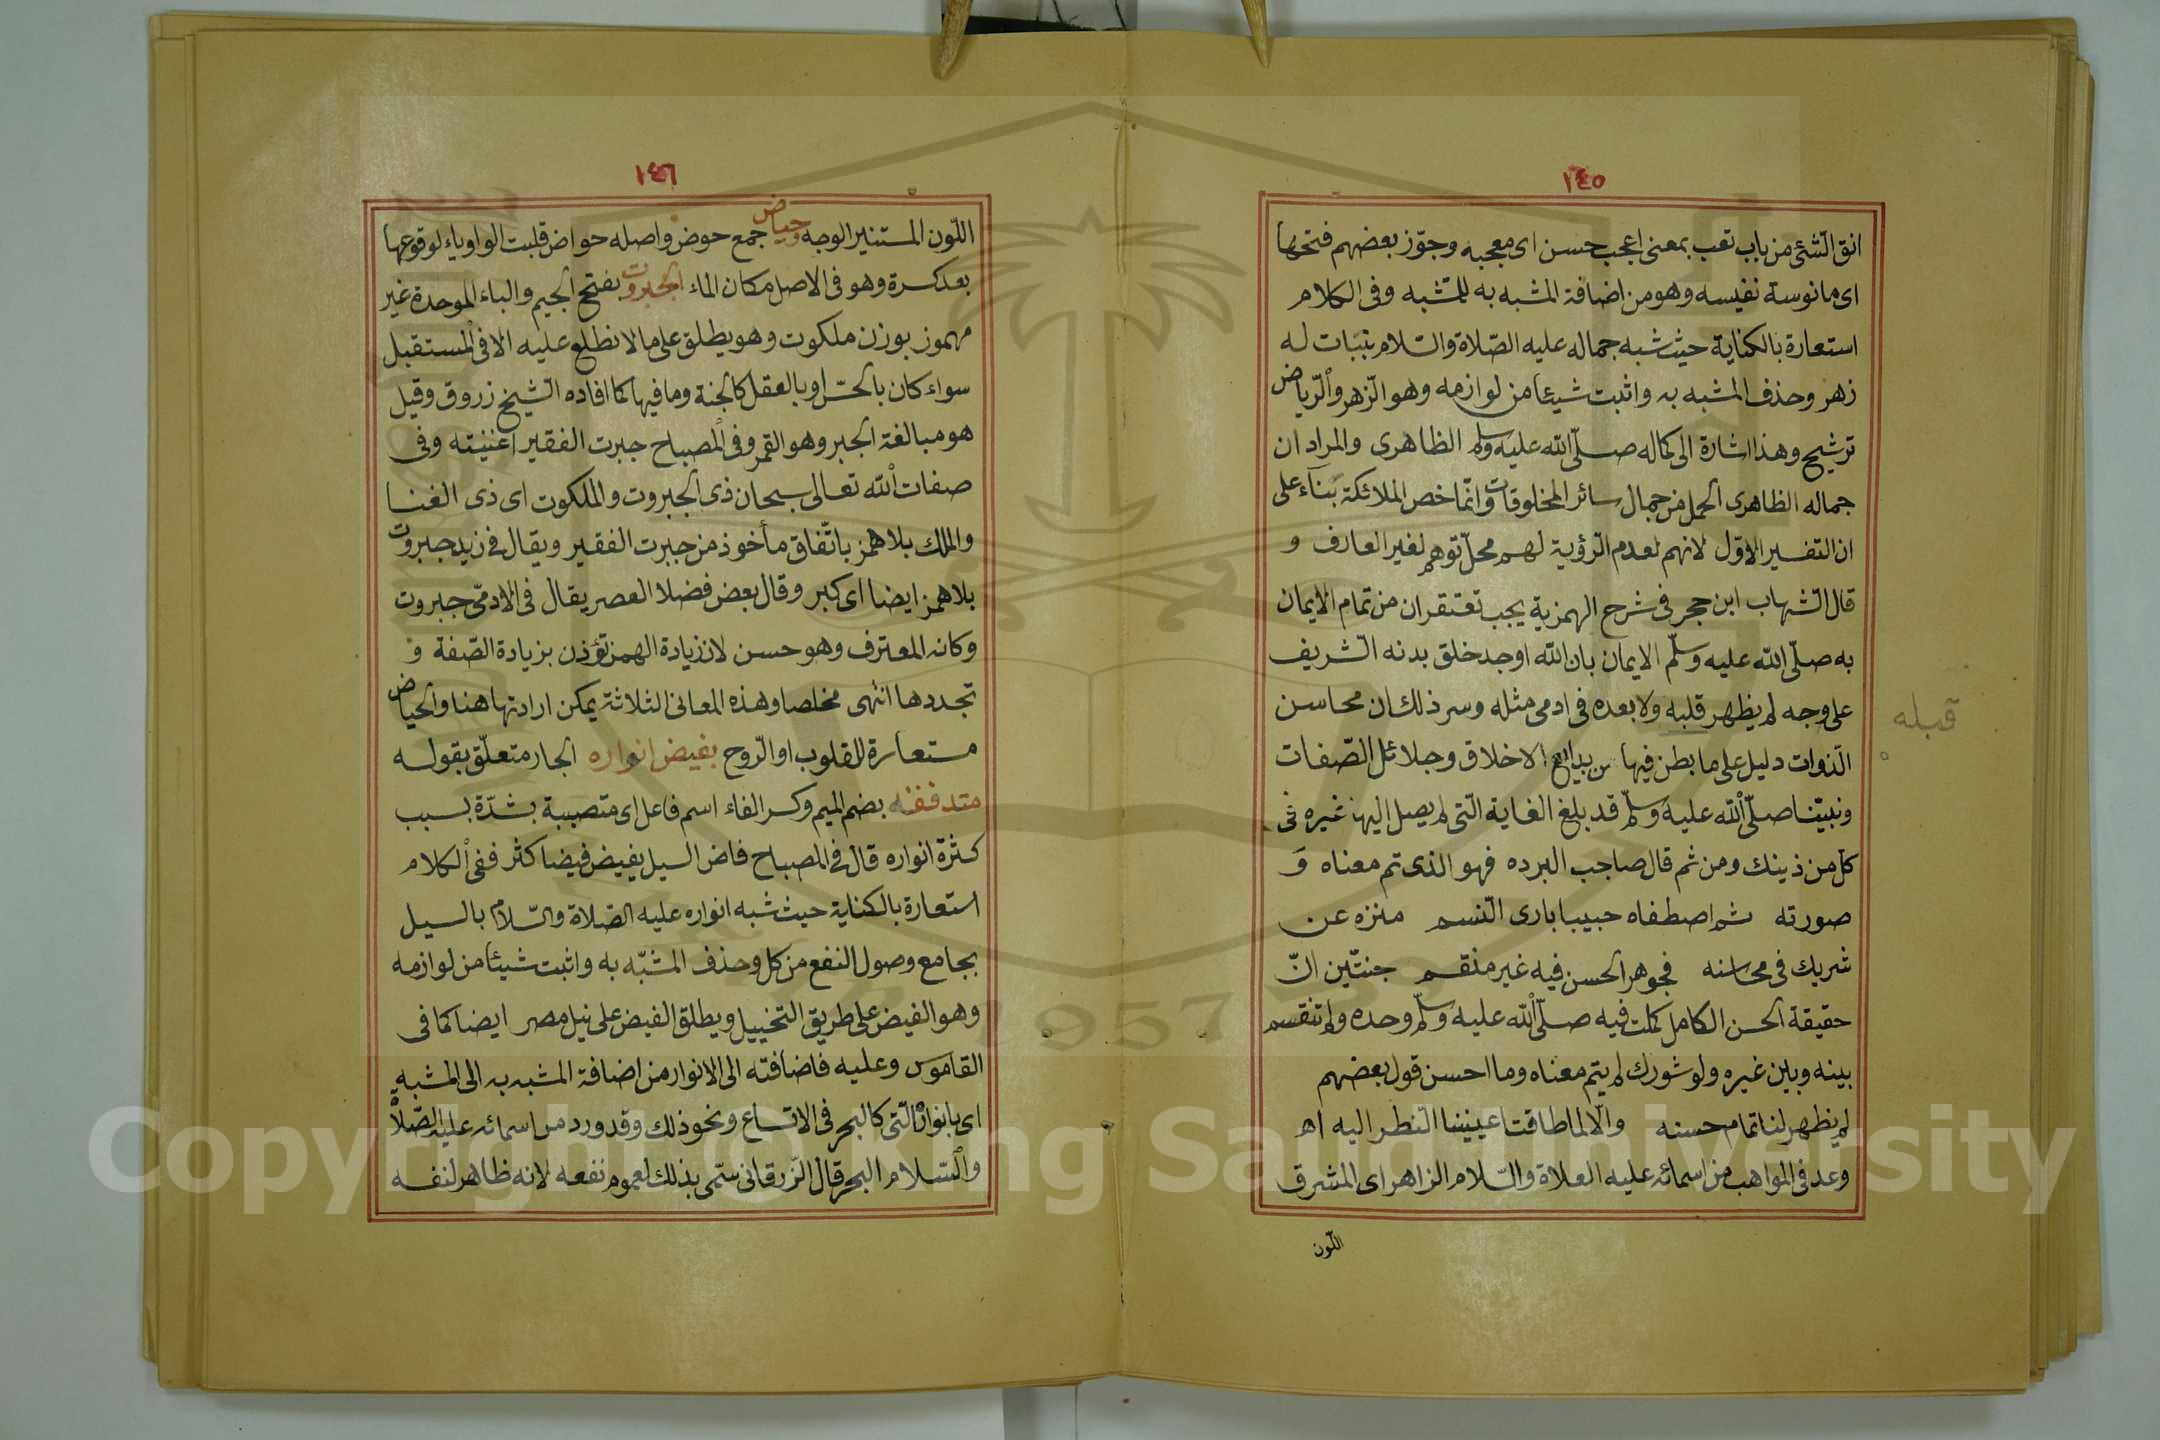 ١٤٥
انق الشئ من باب تعب بمعنى اعجب حسن اى معجبه وجوّز بعضهم فتحها
اى مانوسة نفيسه وهو من اضافة المشبه به للمشبه وفى الكلام
استعارة بالكناية حيث شبه جماله عليه الصّلاة والسّلام بنبات له
زهر وحذف المشبه به واثبت شيئا من لوازمه وهو الزّهر والرّياض
ترشيح وهذا اشارة الى كماله صلّى الله عليه وسلم الظاهرى والمراد ان
جماله الظاهرى اكمل من جمال سائر المخلوقات وانّما خص الملائكة بناء على
ان التفسير الاوّل لانهم لعدم الرّؤية لهم محلّ توهم لغير العارف و
قال الشهاب ابن حجر فى شرح الهمزية يجب تعتقد ان من تمام الايمان
به صلّى الله عليه وسلّم الايمان بان الله اوجد خلق بدنه الشريف
على وجه لم يظهر قلبه ولا بعده فى ادمى مثله وسر ذلك ان محاسن
قبله
الذوات دليل على ما بطن فيها من بدايع الاخلاق وجلائل الصّفات
ونبيّنا صلّى الله عليه وسلّم قد بلغ الغاية الّتى لم يصل اليها غيره فى
كل من ذينك ومن ثم قال صاحب البرده فهو الذى تم معناه و
صورته ثم اصطفاه حبيبا بارى النّسم منزه عن
شريك فى محاسنه فجوهر الحسن فيه غير منقسم جنتّين انّ
حقيقة الحسن الكامل كملت فيه صلّى الله عليه وسلّم وحده ولم تنقسم
بينه وبين غيره ولو شورك لم يتم معناه وما احسن قول بعضهم
لم يظهر لنا تمام حسنه والّا لما طاقت اعيننا النّظر اليه اه
وعد فى المواهب من اسمائه عليه الصلاة والسّلام الزاهر اى المشرق
اللّون
١٤٦
اللّون المستنير الوجه وحياض جمع حوض واصله حواض قلبت الواو ياء لوقوعها
بعد كسرة وهو فى الاصل مكان الماء الجبروت بفتح الجيم والباء الموحدة غير
مهموز بوزن ملكوت وهو يطلق على مالا نطلع عليه الا فى المستقبل
سواء كان بالحسّ او بالعقل كالجنة وما فيها كما افاده الشيخ زروق وقيل
هو مبالغة الجبر وهو القهر وفى المصباح جبرت الفقير اغنيته وفى
صفات الله تعالى سبحان ذى الجبروت والملكوت اى ذى الغنا
والملك بلا همز باتّفاق مأخوذ من جبرت الفقير ويقال فى زيد جبروت
بلا همز ايضا اى كبر وقال بعض فضلا العصر يقال فى الادمّى جبروت
وكانه المعترف وهو حسن لان زيادة الهمز تؤذن بزيادة الصّفة و
تجددها انتهى مخلصا وهذه المعانى الثلاثة يمكن ارادتها هنا والحياض
مستعارة للقلوب او الرّوح بفيض انواره الجار متعلّق بقوله
متدفقه بضم الميم وكسر الفاء اسم فاعل اى متصببة بشدّة بسبب
كثرة انواره قال فى المصباح فاض السيل يفيض فيضا كثر ففى الكلام
استعارة بالكناية حيث شبه انواره عليه الصّلاة والسّلام بالسيل
بجامع وصول النفع من كل وحذف المشبّه به واثبت شيئا من لوازمه
وهو الفيض على طريق التخييل ويطلق الفيض على نيل مصر ايضا كما فى
القاموس وعليه فاضافته الى الانوار من اضافة المشبه به الى المشبه
اى بانوار الّتى كالبحر فى الاتساع ونحو ذلك وقد ورد من اسمائه عليه الصّلاة
والسّلام البحر قال الزّرقانى سمّى بذلك لعموم نفعه لانه ظاهر لنفسه
1957
Copyright © King Saud University